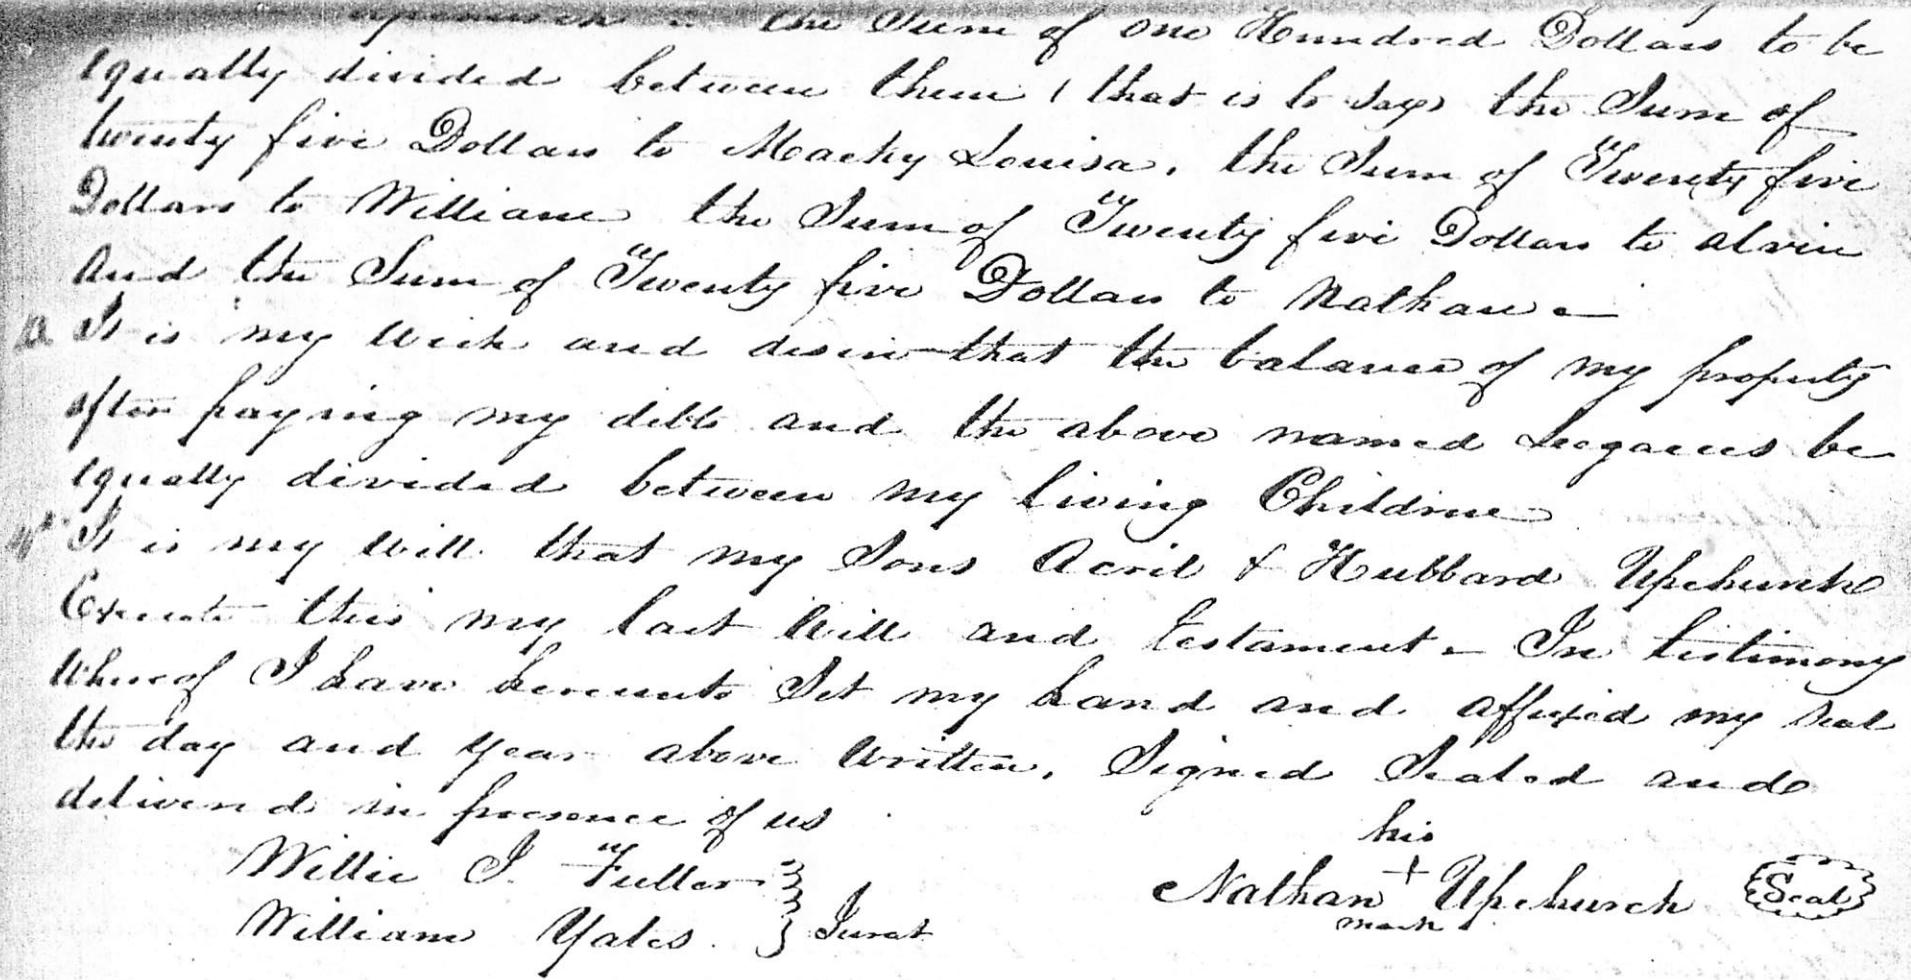 the Sum of one Hundred Dollars to be
equally divided between them ( that is to say) the Sum of
twenty five Dollars to Macky Louisa, the Sum of Twenty five
Dollars to William the Sum of Twenty five Dollars to alvin
And the Sum of Twenty five Dollars to Nathan -
It is my wish and desire that the balance of my property
after paying my debts and the above named Legacies be
equally divided between my living Children
It is my Will that my Sons Acril & Hubbard Upchurch
Execute this my last Will and testament - In testimony
Whereof I have hereunto Set my hand and affixed my Seal
the day and year above written. Signed Sealed and
delivered in presence of us
his
Willie J. Fuller
Nathan + Upchurch Seal
mark
William Yates. } Jurat